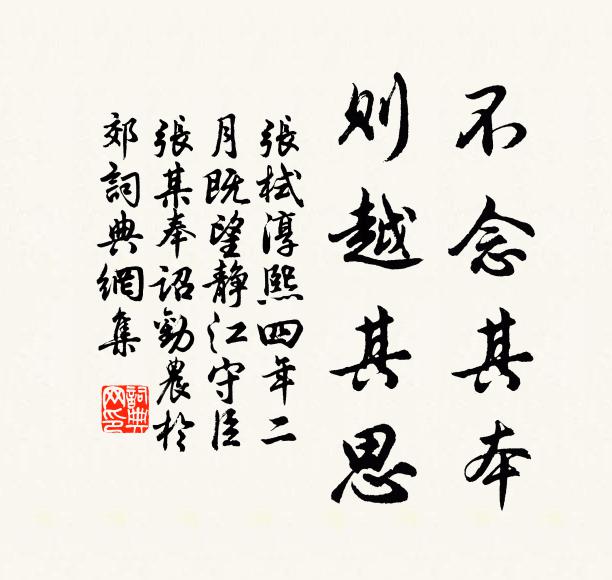 不念其本
則越其思
張栻淳熙四年二
月既望静江守臣
張某奉詔勸農於
郊詞典網集
詞典
网印